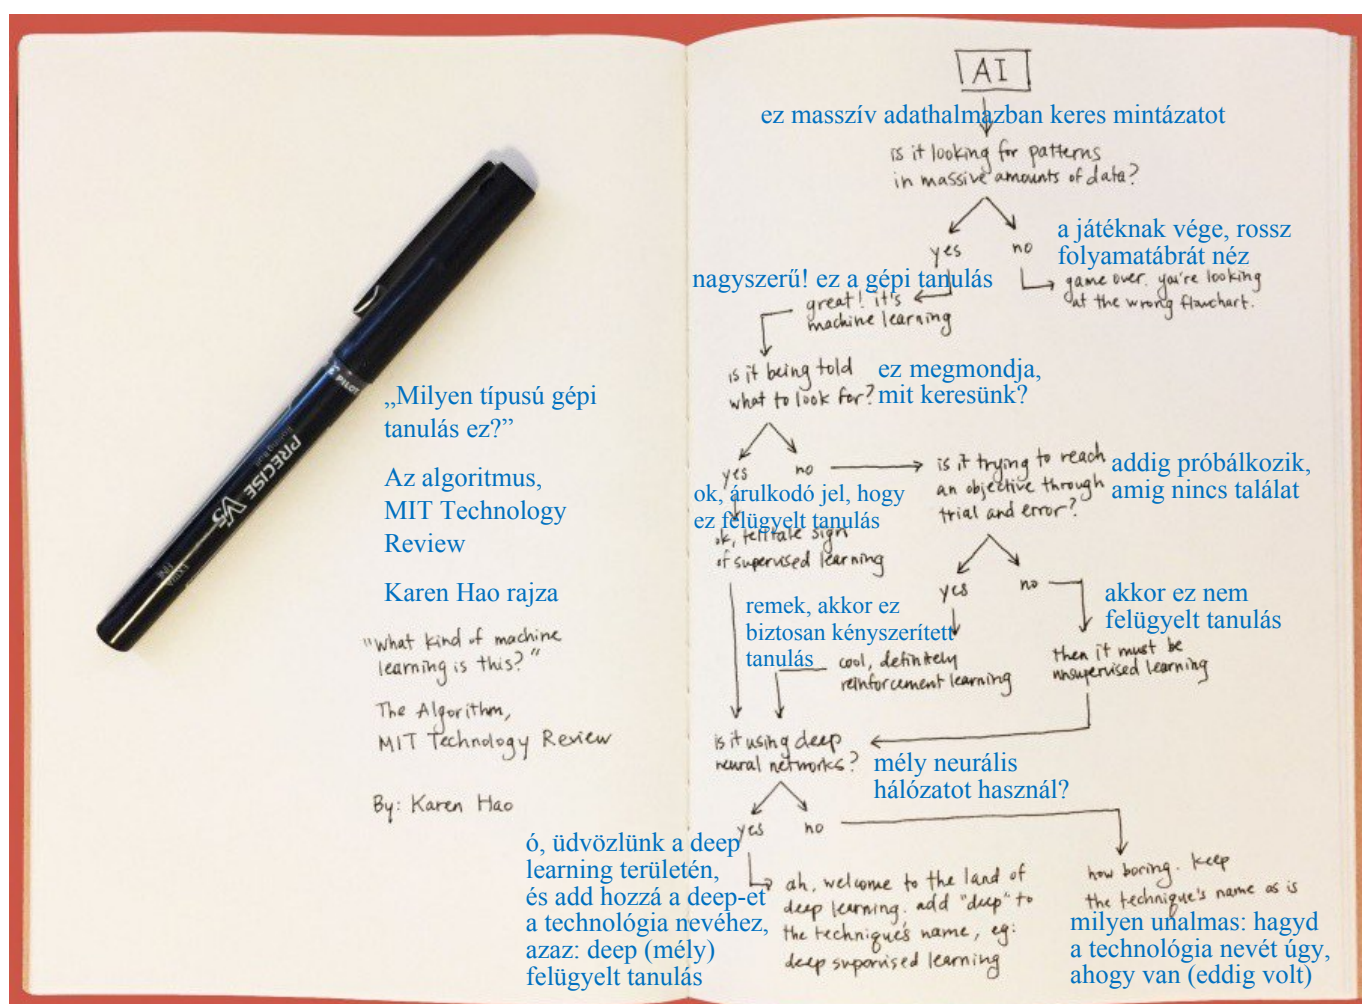 PILOT
Rolling Ball
PRECISE V5
EXTRA
FINE
„Milyen típusú gépi
tanulás ez?”
Az algoritmus,
MIT Technology
Review
Karen Hao rajza
"What kind of machine
learning is this?"
The Algorithm,
MIT Technology Review
By: Karen Hao
AI
ez masszív adathalmazban keres mintázatot
is it looking for patterns
in massive amounts of data?
yes
no
a játéknak vége, rossz
folyamatábrát néz
game over. you're looking
at the wrong flowchart.
nagyszerű! ez a gépi tanulás
great! it's
machine learning
is it being told
what to look for?
ez megmondja,
mit keresünk?
yes
no
is it trying to reach
an objective through
trial and error?
addig próbálkozik,
amig nincs találat
ok, árulkodó jel, hogy
ez felügyelt tanulás
ok, telltale sign
of supervised learning
yes
no
akkor ez nem
felügyelt tanulás
then it must be
unsupervised learning
remek, akkor ez
biztosan kényszerített
tanulás
cool, definitely
reinforcement learning
is it using deep
neural networks?
mély neurális
hálózatot használ?
yes
no
ó, üdvözlünk a deep
learning területén,
és add hozzá a deep-et
a technológia nevéhez,
azaz: deep (mély)
felügyelt tanulás
ah, welcome to the land of
deep learning. add "deep" to
the technique's name, eg:
deep supervised learning
how boring. keep
the technique's name as is
milyen unalmas: hagyd
a technológia nevét úgy,
ahogy van (eddig volt)